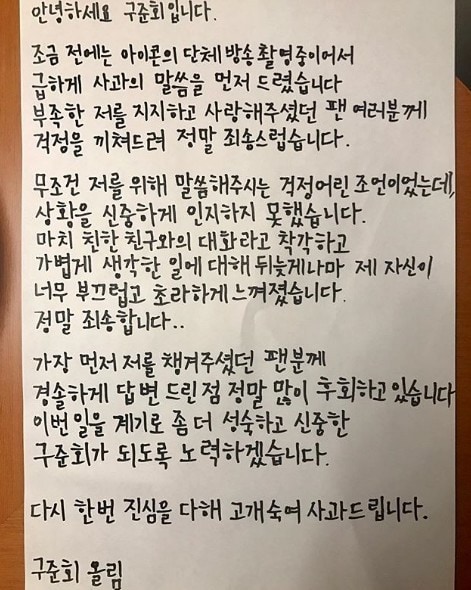 안녕하세요 구준회입니다.
조금 전에는 아이콘의 단체방송 촬영중이어서
급하게 사과의 말씀을 먼저 드렸습니다
부족한 저를 지지하고 사랑해주셨던 팬 여러분께
걱정을 끼쳐드려 정말 죄송스럽습니다.
무조건 저를 위해 말씀해주시는 걱정어린 조언이었는데,
상황을 신중하게 인지하지 못했습니다.
마치 친한 친구와의 대화라고 착각하고
가볍게 생각한 일에 대해 뒤늦게나마 제 자신이
너무 부끄럽고 초라하게 느껴졌습니다.
정말 죄송합니다..
가장 먼저 저를 챙겨주셨던 팬분께
경솔하게 답변 드린점 정말 많이 후회하고 있습니다
이번 일을 계기로 좀 더 성숙하고 신중한
구준회가 되도록 노력하겠습니다.
다시 한번 진심을 다해 고개숙여 사과드립니다.
구준회 올림